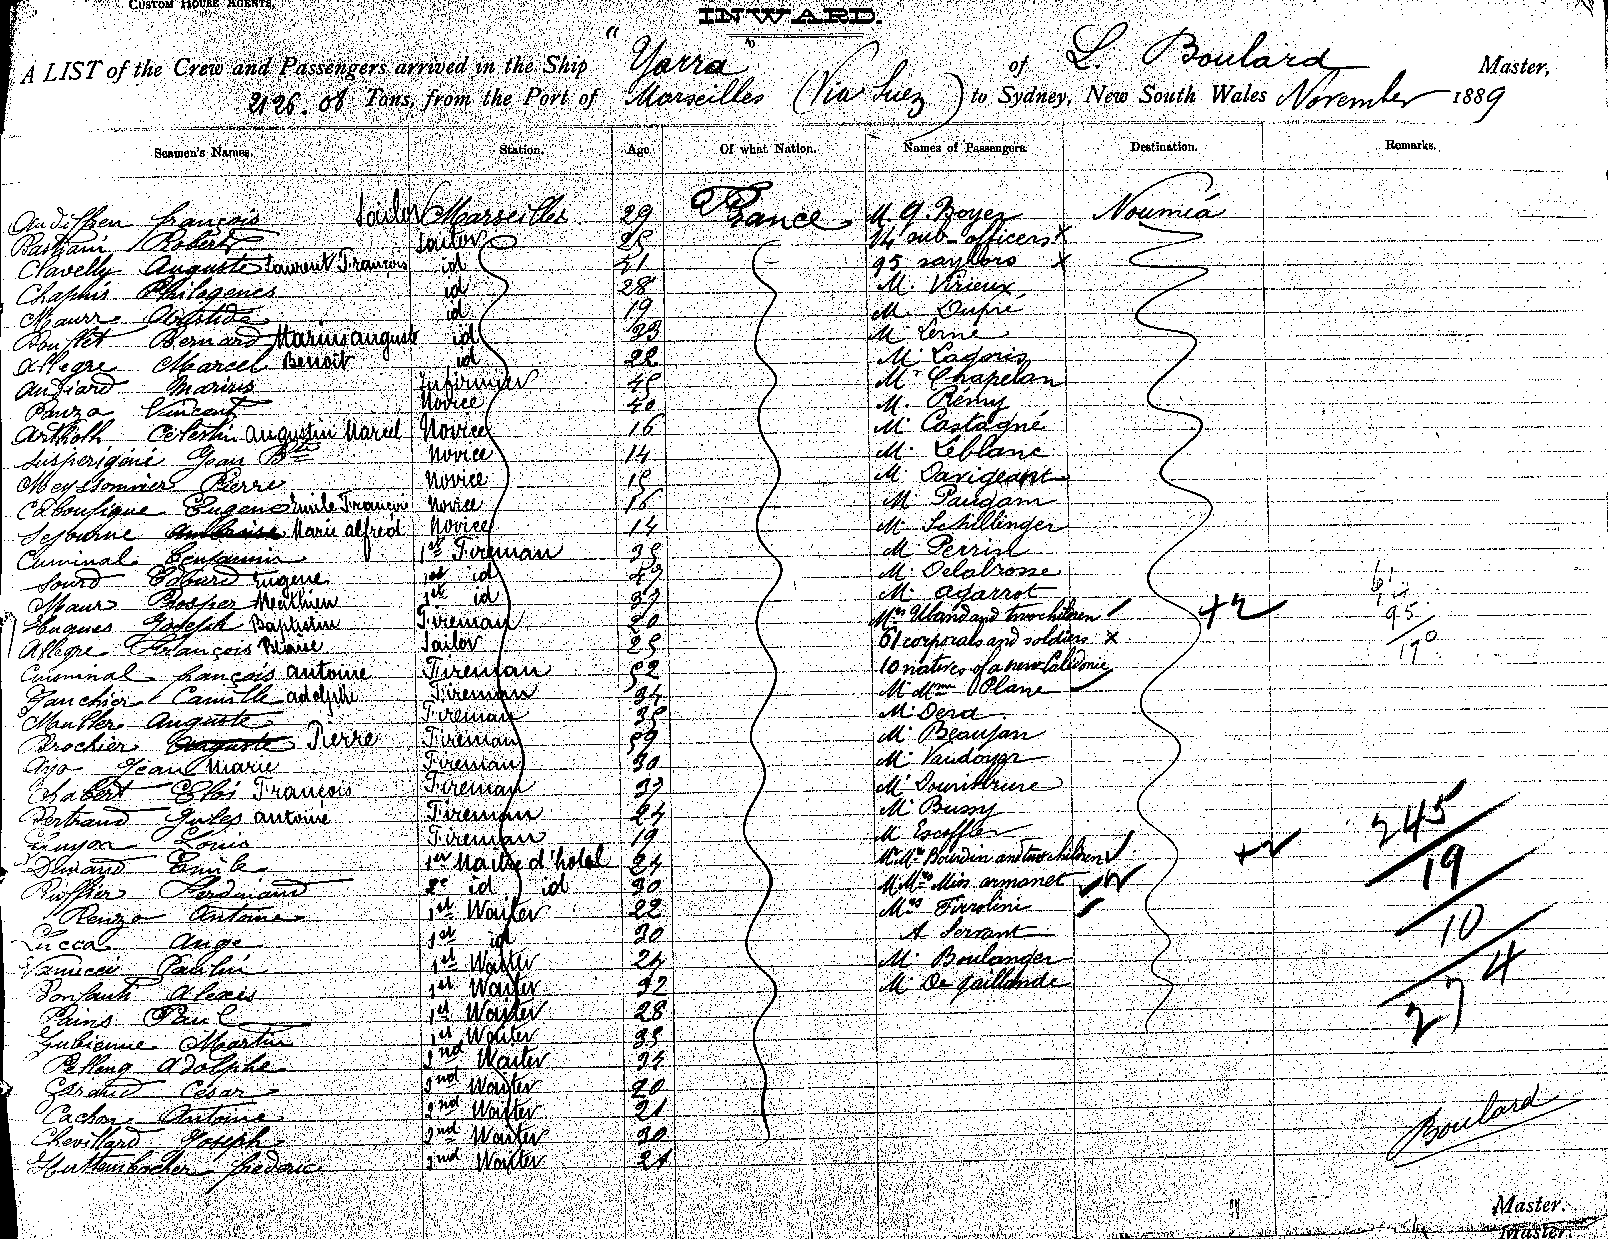 CUSTOM HOUSE AGENTS,
INWARD.
A LIST of the Crew and Passengers arrived in the Ship "Yarra" of L. Boulard Master,
2126.08 Tons, from the Port of Marseilles (Via Suez) to Sydney, New South Wales November 1889
Seamen's Names. Station. Age Of what Nation. Names of Passengers. Destination. Remarks.
françois Sailor Marseilles 29 France M. Boyer Nouméa
Robert Sailor 25 94 sub-officers x
Clavelly Auguste Laurent François id 21 95 saylors x
Chapuis Philogenes id 28 M. Virieux
Maurre Aristide id 19 M. Dupré
Bernard Marius auguste id 33 M
Allegre Marcel Benoit id 22 M.
Audiard Marius Infirmier 45 M. Chapelan
Panza Vincent Novice 40 M. Remy
Celestin Augustin Marcel Novice 16 M. Castagné
Jean Bte Novice 14 M. Leblanc
Meyssonnier Pierre Novice 15 M.
Eugene Emile François Novice 16 M Paugam
Sejourne Marie alfred Novice 14 M. Schillinger
Cuminal Benjamin 1st Fireman 35 M Perrin
Sourd Edouard Eugene 1st id 47 M. Delabrosse
Maur Prosper Mathieu 1st id 37 M. Agarrot
Hugues Joseph Baptistin Fireman 30 Mrs and two children +2 61
Allegre François Sailor 25 61 corporals and soldiers x 95
Cuminal françois antoine Fireman 52 10 natives of a new Caledonie 19
Camille adolphe Fireman 34 M Mme Plane
Auguste Fireman 35 M. Dera
Brochier Pierre Fireman 59 M. Beaujan
Jean Marie Fireman 30 M. Vaudoyer
Chabert Eloi François Fireman 33 M.
Bertrand Jules antoine Fireman 24 M. Bussy 245
Guyon Louis Fireman 19 M Escoffier
Durand Emile 1er Maitre d'hotel 24 Mr Mme Bourdin and two children +2 19
Ruffier Ferdinand 2e id id 30 M Mrs Miss armanet
Renzo Antoine 1st Waiter 22 Mrs Tirrolini 10
Lucca Ange 1st id 30 A Servant
Vanucci Paulin 1st Waiter 24 M. Boulanger 274
Alexis 1st Waiter 32 M De Gaillande
Pains Paul 1st Waiter 28
Martin 1st Waiter 35
Adolphe 2nd Waiter 34
Cesar 2nd Waiter 20
Cachon Antoine 2nd Waiter 21
Chevillard Joseph 2nd Waiter 30 Boulard
frederic 2nd Waiter 21
Master.
Master.